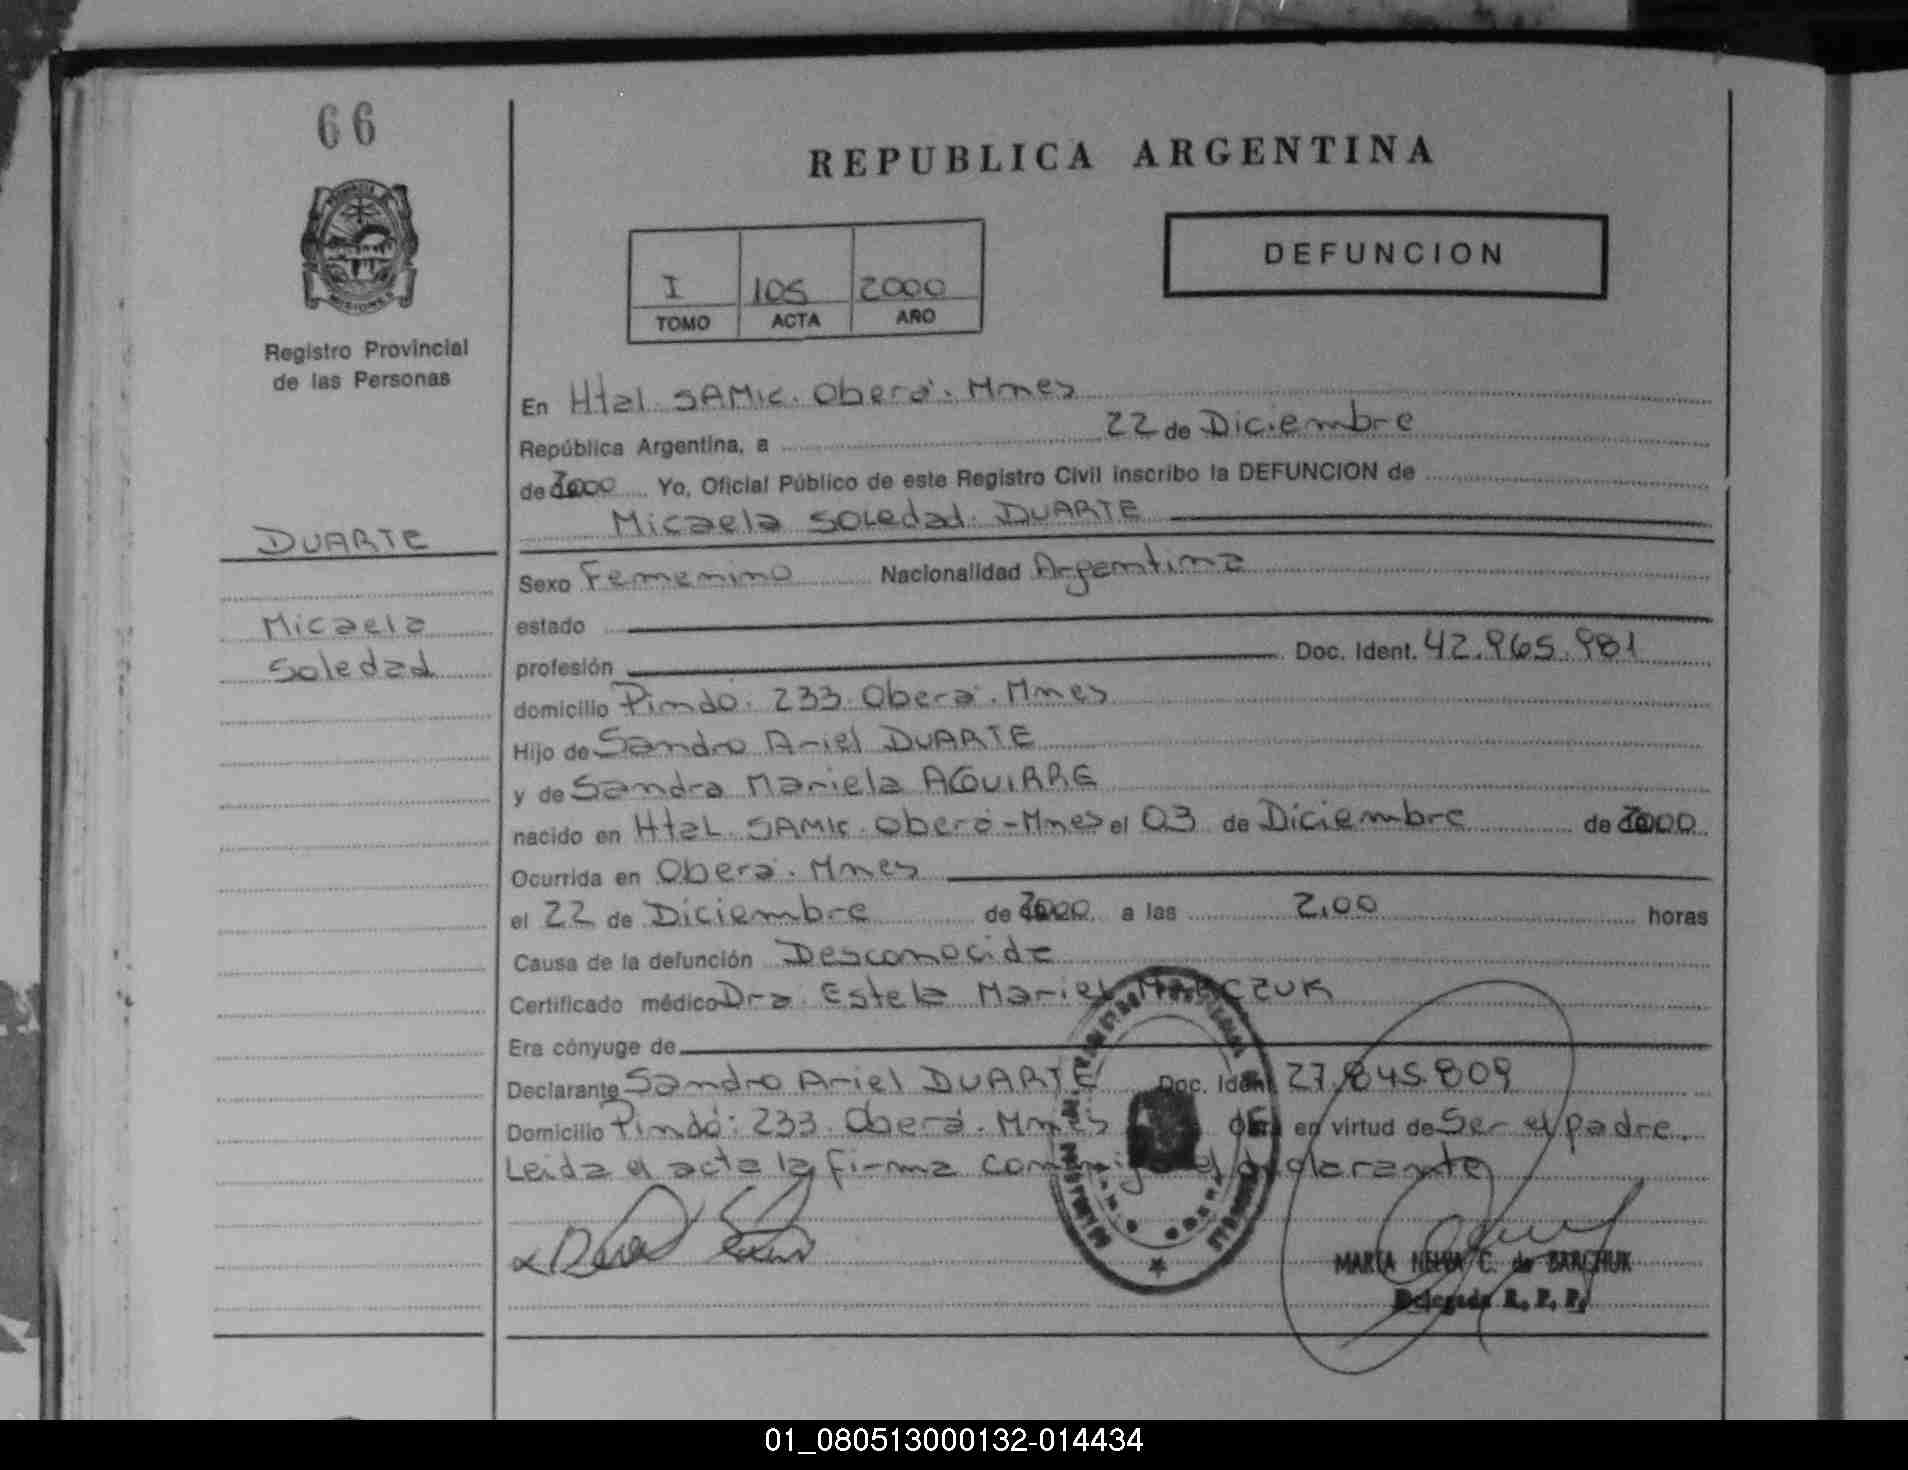 66
REPUBLICA ARGENTINA
DEFUNCION
I 105 2000
TOMO ACTA AÑO
MISIONES
Registro Provincial
de las Personas
DUARTE
Micaela
Soledad
En Htal. SAMIC. Oberá. Mnes
República Argentina, a 22 de Diciembre
de 2000 Yo, Oficial Público de este Registro Civil inscribo la DEFUNCION de
Micaela Soledad DUARTE
Sexo Femenino Nacionalidad Argentina
estado
profesión Doc. Ident. 42.965.981
domicilio Pindó. 233. Oberá. Mnes
Hijo de Sandro Ariel DUARTE
y de Sandra Mariela AGUIRRE
nacido en Htal. SAMIC. Oberá - Mnes el 03 de Diciembre de 2000
Ocurrida en Oberá. Mnes
el 22 de Diciembre de 2000 a las 2,00 horas
Causa de la defunción Desconocida
Certificado médico Dra. Estela Mariel MARCZUK
Era cónyuge de
Declarante Sandro Ariel DUARTE Doc. Ident. 27.845.809
Domicilio Pindó: 233. Oberá. Mnes en virtud de Ser el padre.
Leida el acta la firma conmigo el declarante
MARIA NELVA C. de BARCHUK
Delegada R. P. P.
01_080513000132-014434